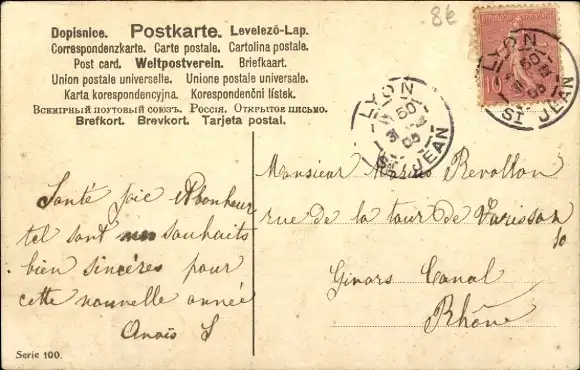 8€
Dopisnice. Postkarte. Levelező-Lap.
Correspondenzkarte. Carte postale. Cartolina postale.
Post card. Weltpostverein. Briefkaart.
Union postale universelle. Unione postale universale.
Karta korespondencyjna. Korespondenční lístek.
Всемірный почтовый союзъ. Россія. Открытое письмо.
Brefkort. Brevkort. Tarjeta postal.
10
LYON
ST JEAN
LYON
ST JEAN
Monsieur Marius Revollon
rue de la tour de Varissan
10
Givors Canal
Rhône
Santé joie & bonheur
tel sont mes souhaits
bien sincères pour
cette nouvelle année
Anaïs S
Serie 100.